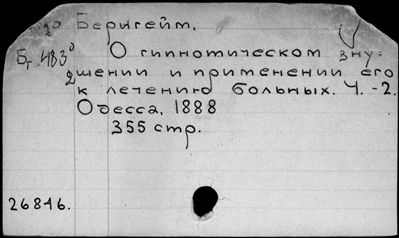 2º Беригейм.
Бг.483º О гипнотическом вну-
шении и применении его
к лечению больных. Ч. -2.
Одесса, 1888
355 стр.
26846.